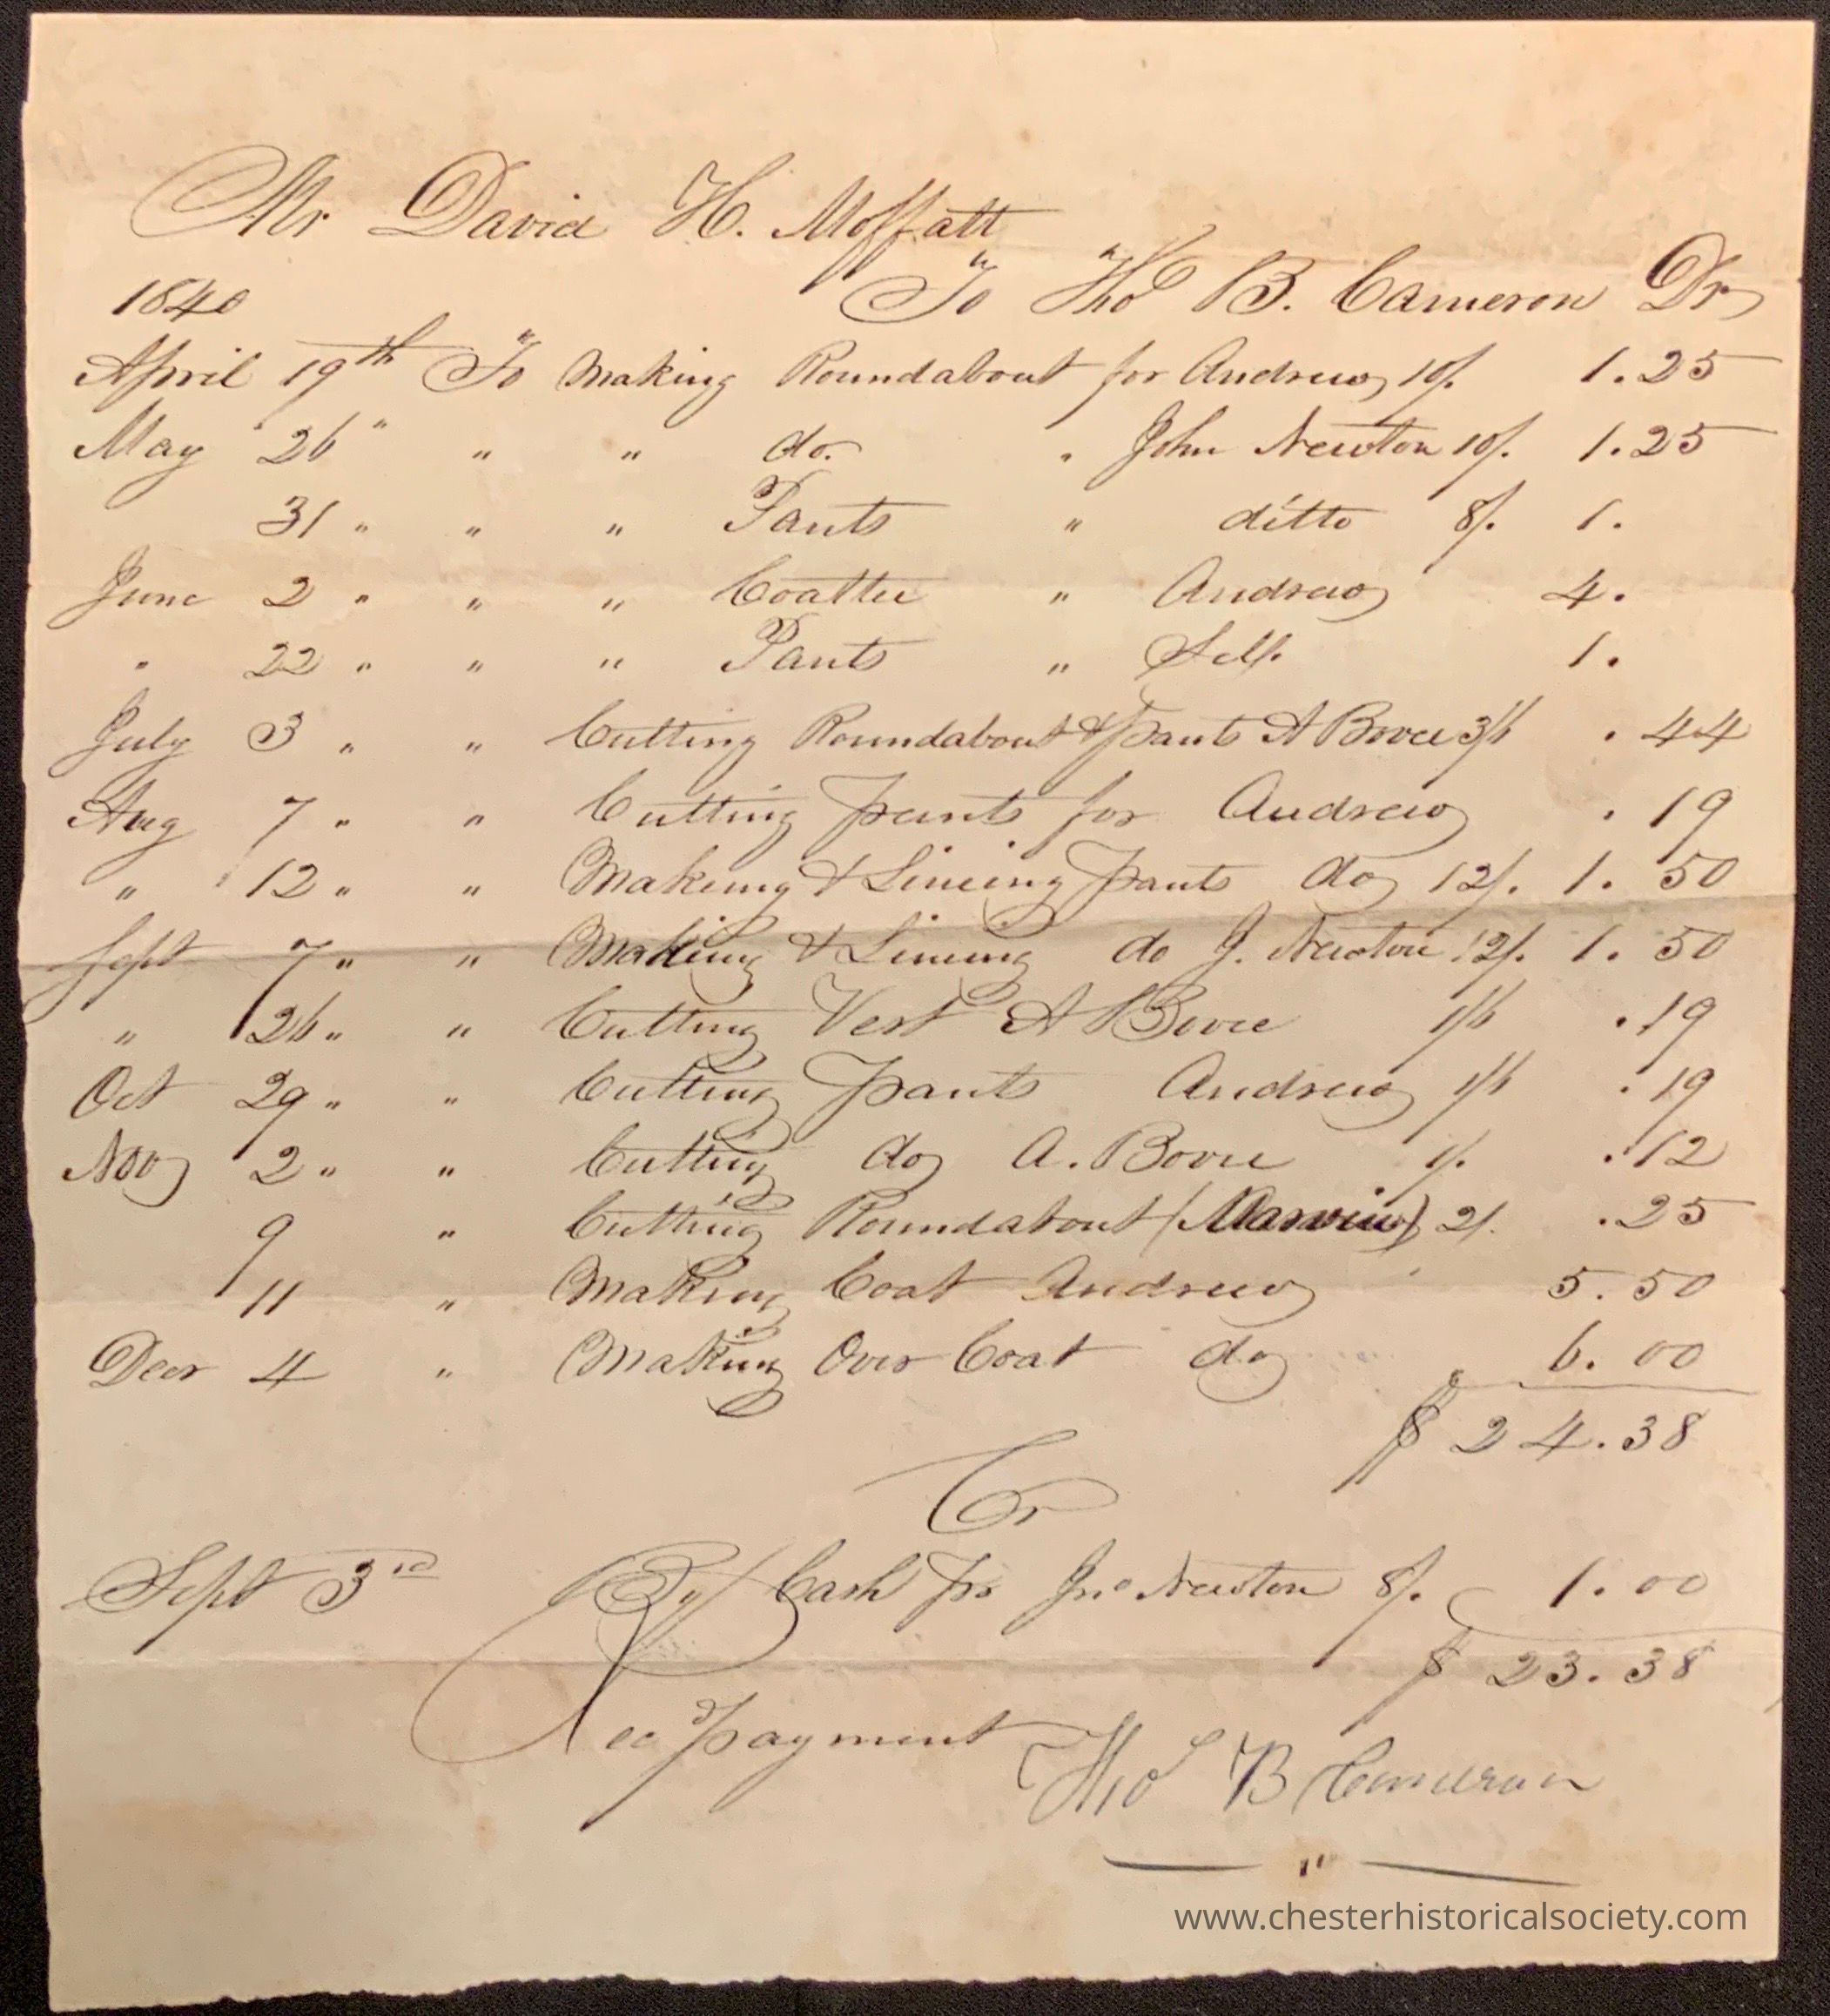 Mr David H. Moffatt
1840 To Tho B. Cameron Dr
April 19th To Making Roundabout for Andrew 10/. 1.25
May 26 " " " do. " John Newton 10/. 1.25
31 " " " Pants " ditto 8/. 1.
June 2 " " " Coattee " Andrew 4.
" 22 " " " Pants " Self. 1.
July 3 " " Cutting Roundabout & pants A Bovee 3/6 .44
Aug 7 " " Cutting pants for Andrew .19
" 12 " " Makeing & Lineing pants do 12/. 1.50
Sept 7 " " Making & Lineing do J. Newton 12/. 1.50
" 26 " " Cutting Vest A Bovee 1/6 .19
Oct 29 " " Cutting pants Andrew 1/6 .19
Nov 2 " " Cutting do A. Bovee 1/. .12
9 " Cutting Roundabout (Marvin) 2/. .25
11 " Making Coat Andrew 5.50
Decr 4 " Making Over Coat do 6.00
$ 24.38
Cr
Sept 3rd By Cash pr Jno Newton 8/. 1.00
$ 23.38
Recd payment Tho B Cameron
"
www.chesterhistoricalsociety.com